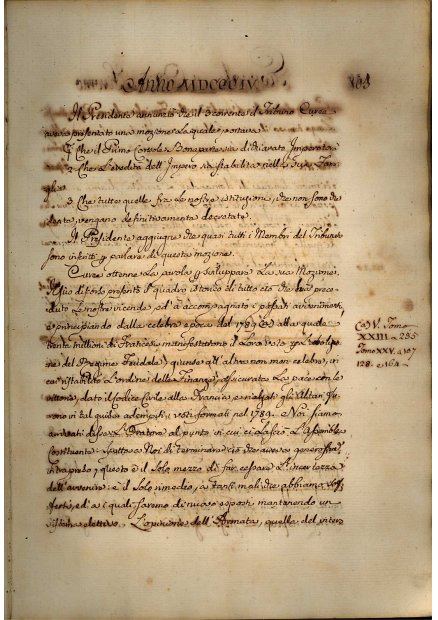 Anno MDCCCIV
Il Presidente annunziò che il 3 corrente il Tribuno Curea
avea presentato una mozione, la quale portava
1 Che il Primo Console Bonaparte sia dichiarato Imperatore
2 Che l'eredità dell'Impero sia stabilita nella sua Fami-
glia
3 Che tutte quelle fra le nostre istituzioni, che non sono de-
cretate, vengano definitivamente decretate.
Il Presidente aggiugne che quasi tutti i Membri del Tribunato
sono inscritti per parlare di questa mozione.
Curee ottenne la parola per sviluppare la sua Mozione.
da prima presentò il quadro istorico di tutto ciò che ha prece-
duto le nostre vicende, ed à accompagnato i passati avvenimenti,
principiando dalla celebre epoca del 1789 alla quale
trenta millioni di Francesi manifestarono il loro voto per l'aboli-
zione del Regime Feudale,
ristabilito l'ordine delle Finanze, assicurata la pace con le
vittorie, dato il Codice Civile alla Francia
rono in tal guisa adempiti i voti formati nel 1789. Noi siamo
arrivati disse l'Oratore al punto in cui ci lasciò l'Assemblea
Costituente. Spetta a Noi di terminare ciò che aveva generosamente
intrapreso, questo è il solo mezzo di far cessare l'incertezza
dell'avvenire, è il solo rimedio, a tanti mali che abbiamo sof-
ferti, ed a i quali saremo di nuovo esposti mantenendo un
sistema elettivo. L'opinione dell'Armata, quella del intero
V. Tomo
XXIII a 235
Tomo XXV a 107
128. e 164.